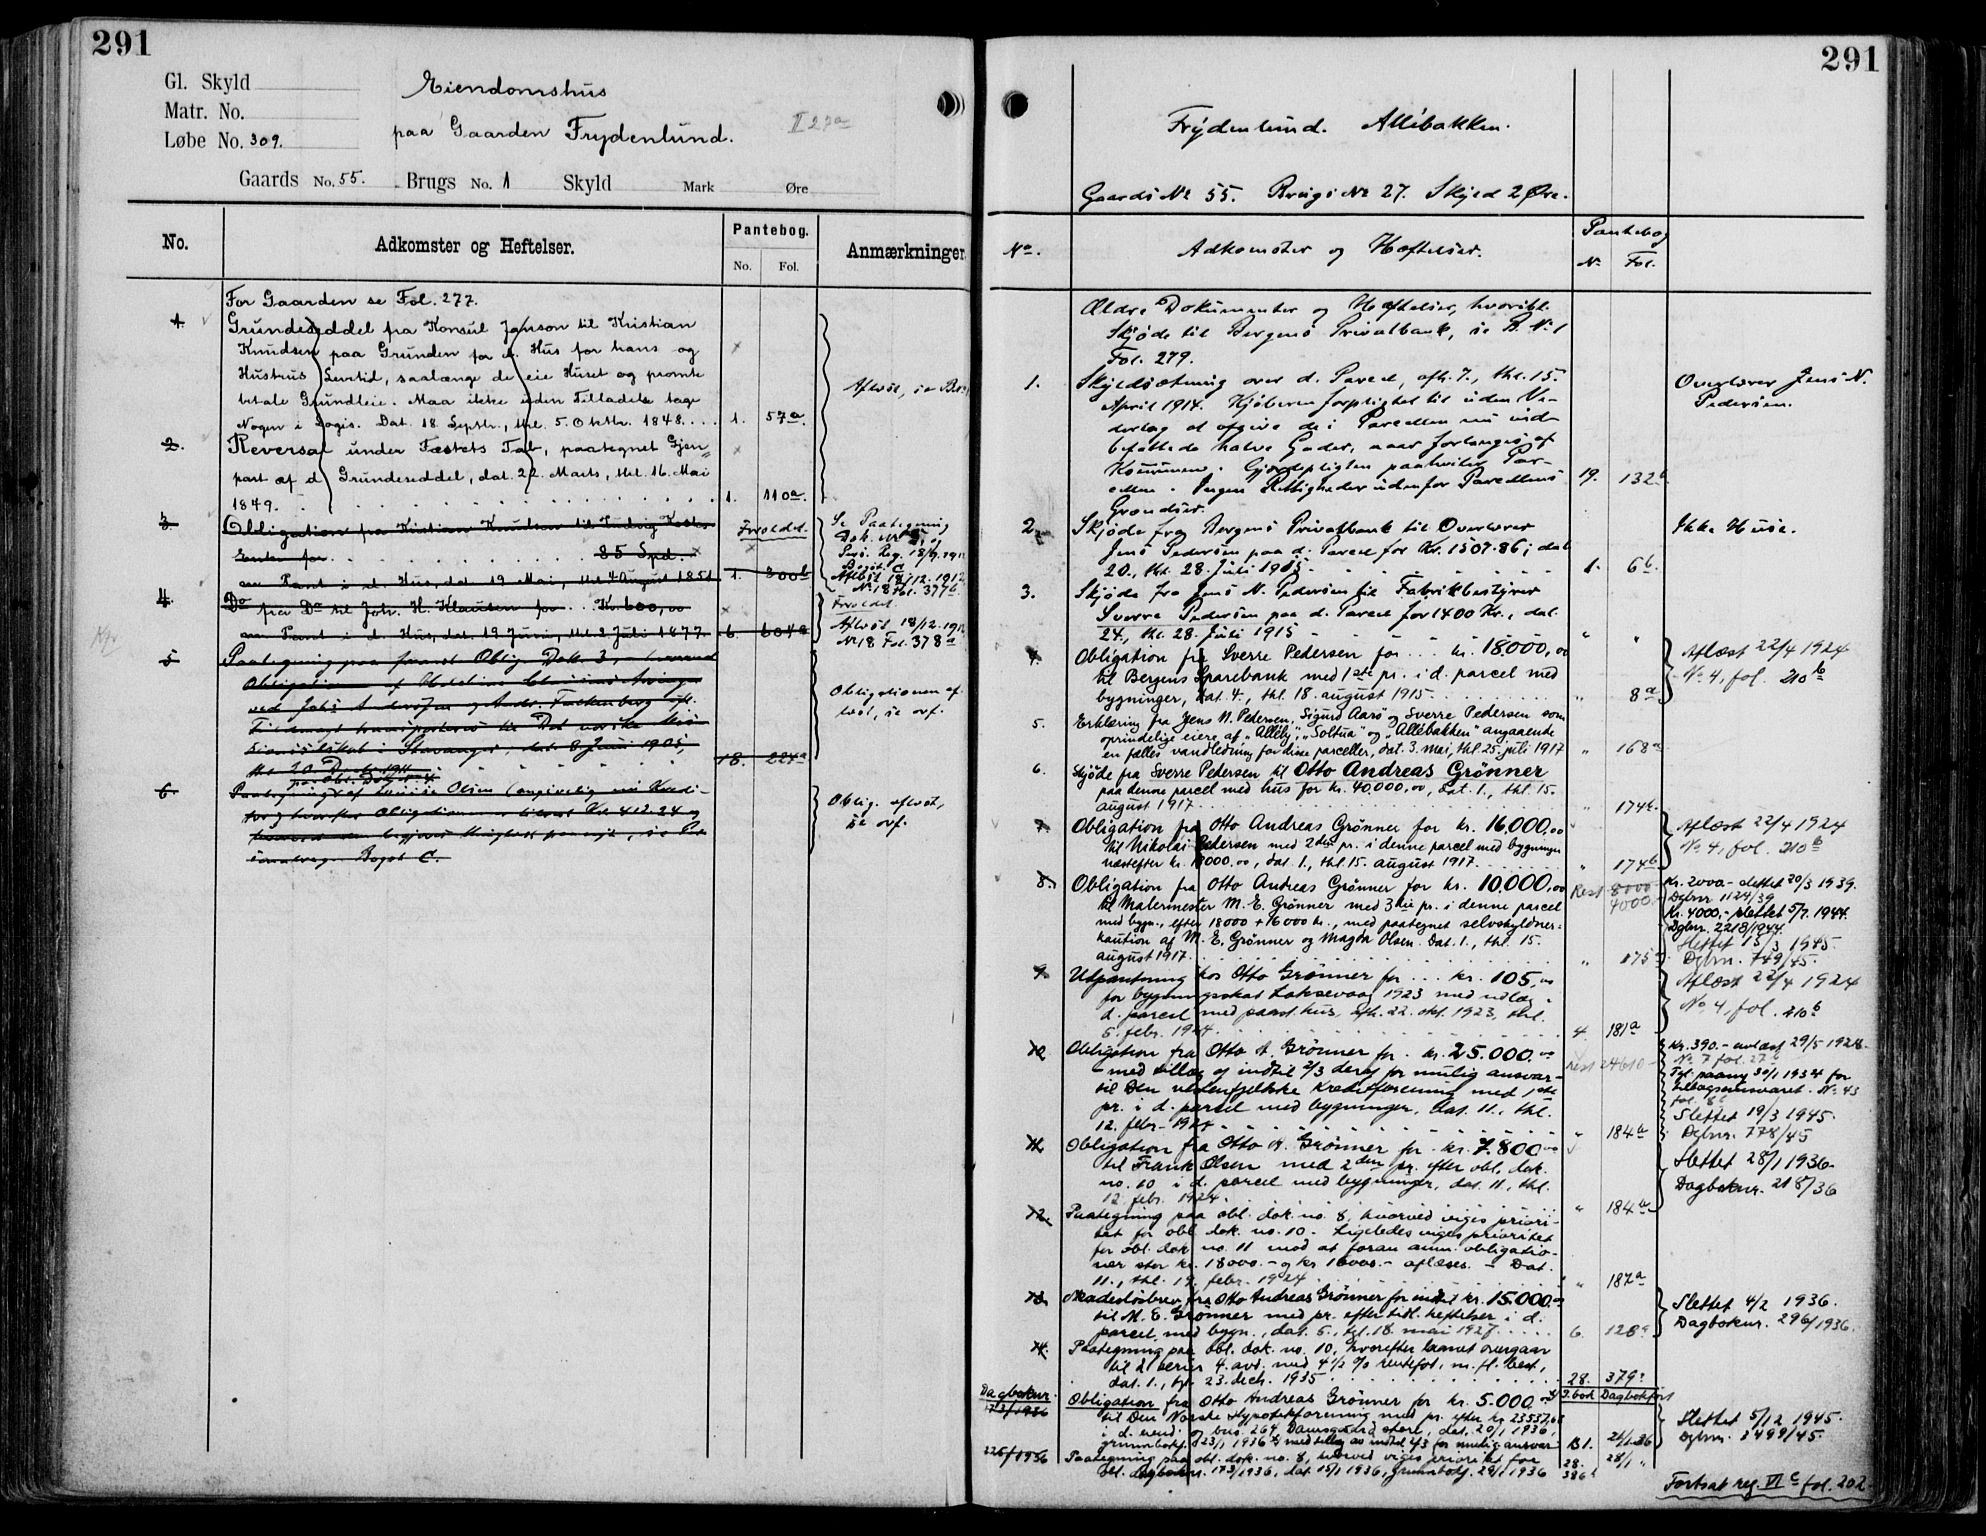 291
Gl. Skyld
Matr. No.
Løbe No. 309.
Eiendomshus
paa Gaarden Frydenlund.
II 27a
Gaards No. 55. Brugs No. 1 Skyld Mark Øre
No.
Adkomster og Heftelser.
Pantebog.
No. Fol.
Anmærkninger
For Gaarden se Fol. 277.
1. Grundeseddel fra Konsul Janson til Kristian
Knudsen paa Grunden for d. Hus for hans og
Hustrus Levetid, saalænge de eie Huset og promte
betale Grundleie. Maa ikke uden Tilladelse tage
Nogen i Logis. Dat. 18 Septr., thl. 5. Oktbr. 1848. 1. 57a.
Afløst, se
2. Reversal under Fæstets Tab, paategnet Gjen-
part af d. Grundeseddel, dat. 22. Marts, thl. 16. Mai
1849. 1. 110a.
3. Obligation fra Kristian Knudsen til Ludvig
Enke for 85 Spd.
mod Pant i d. Hus, dat. 19 Mai, thl. 4 August 1851 1. 300b
Se Paategning
Dok. No 5, og
Afløst 18/12. 1912
No 18 Fol. 377b.
4. Do fra Do til Joh. H. Klausen for Kr. 600,00
mod Pant i d. Hus, dat. 19 Juni, thl. 2 Juli 1877. 6. 604a
Afløst 18/12. 191
No 18 Fol. 378a
5. Paategning paa foranst. Oblig. Dok. 3, hvorved
Obligationen af
ved Johs Andersen og Andr. Falkenberg
transporteres til Det norske Mis-
sionsselskab i Stavanger, dat. 8 Juni 1905,
thl. 20 Decbr. 1911 18. 224a
Obligationen af-
løst, se ovf.
6. Paategning af Olsen (angivelig ny Kredi-
tor
Bogst C.
Oblig. afløst,
se ovf.
291
Frydenlund. Allebakken.
Gaards No 55. Brugs No 27. Skyld 2 Øre.
No. Adkomster og Hæftelser. Pantebog
No Fol.
Ældre Dokumenter og Hæftelser, hvoribl.
Skjøde til Bergens Privatbank, se B. No 1
Fol. 279.
1. Skyldsætning over d. Parcel, afh. 7., thl. 15.
April 1914. Kjøberen forpligtet til uden Ve-
derlag at afgive de i Parcellen nu ind-
befattede halve Gader, naar forlanges af
Kommunen. Gjerdepligten paahviler Par-
cellen. Ingen Rettigheder udenfor Parcellens
Grændser. 19. 132b
Overlærer Jens N.
Pedersen.
2. Skjøde fra Bergens Privatbank til Overlærer
Jens Pedersen paa d. Parcel for Kr. 1507.86; dat
20., thl. 28. Juli 1915 1. 6b.
Ikke Huse.
3. Skjøde fra Jens N. Pedersen til Fabrikbestyrer
Sverre Pedersen paa d. Parcel for 1400 Kr., dat.
24., thl. 28. Juli 1915 " "
4. Obligation fra Sverre Pedersen for kr. 18000,00
til Bergens Sparebank med 1ste pr. i d. parcel med
bygninger, dat. 4., thl. 18. august 1915. " 8a
Aflæst 22/4 1924
No. 4, fol. 210b
5. Erklæring fra Jens N. Pedersen, Sigurd Aarø og Sverre Pedersen som
oprindelige eiere af "Alleby", "Soltua" og "Allebakken" angaaende
en fælles vandledning for disse parceller, dat. 3. mai, thl. 25. juli 1917 " 168a
6. Skjøde fra Sverre Pedersen til Otto Andreas Grønner
paa denne parcel med hus for kr. 40,000,00, dat. 1., thl. 15.
august 1917. " 174b.
7. Obligation fra Otto Andreas Grønner for kr. 16,000,00
til Nikolai Pedersen med 2den pr. i denne parcel med bygninger
næstefter kr. 18000.00, dat. 1., thl. 15. august 1917. " 174b
Aflæst 22/4 1924
No. 4, fol. 210b
8. Obligation fra Otto Andreas Grønner for kr. 10,000,00
til Malermester M. E. Grønner med 3die pr. i denne parcel
med bygn., efter 18000 + 16000 kr., med paategnet selvskyldner-
kaution af M. E. Grønner og Magda Olsen. Dat. 1., thl. 15.
august 1917. " 175
Rest 8000
4000.
Kr. 2000.- slettet 20/3 1939.
Dgbnr 1124/39
Kr. 4000.- slettet 5/7. 1944.
Dgbnr. 2218/1944.
Slettet 15/3 1945.
Dgbnr. 749/45.
9. Utpantning hos Otto Grønner for kr. 105,00
for bygningsskat Laksevaag 1923 med utlæg i
d. parcel med paast. hus, afh. 22. okt. 1923, thl.
5. febr. 1924. 4 181a
Aflæst 22/4 1924
No. 4, fol. 210b
10. Obligation fra Otto A. Grønner for kr. 25.000.00
med tillæg af indtil 2/3 deraf for mulig ansvar-
til Den vestenfjeldske Kreditforening med 1ste
pr. i d. parcel med bygninger, dat. 11., thl.
12. febr. 1924. " 184a
rest 24610
Kr. 390.- avlæst 29/5 1928
No. 7 fol. 27
30/1 1934 for
tilbagesansvaret. No. 43
Slettet 19/3 1945.
Dgbnr. 778/45
11. Obligation fra Otto A. Grønner for kr. 7.800.00
til Frank Olsen med 2den pr. efter obl. dok.
no. 10 i d. parcel med bygninger, dat. 11, thl.
12. febr. 1924. " 184b
Slettet 28/1 1936.
Dagboknr. 218/36
12. Paategning paa obl. dok. no. 8, hvorved viges priori-
tet for obl. dok. no. 10. Ligeledes viges prioritet
for obl. dok. no. 11 mod at foran anm. obligatio-
ner stor kr. 18000.- og kr 16000.- aflæses. - Dat.
11., thl. 19. febr. 1924 " 187a
13. Skadesløsbrev fra Otto Andreas Grønner for indtil kr. 15.000.00
til M. E. Grønner med pr. efter tidl. heftelser i d.
parcel med bygn., dat. 5., tgl. 18. mai 1927. 6. 128a
Slettet 4/2 1936.
Dagboknr. 296/1936.
14. Paategning paa obl. dok. no. 10, hvorefter laanet overgaar
til 2. series 4. avd. med 4½ % rentefot, m. fl. best.,
dat. 1., tgl. 23. dech. 1935. 28. 379a
Dagboknr.
173/1936
Obligation fra Otto Andreas Grønner for kr. 5.000.00
til Den Norske Hypotekforening med pr. efter kr 23537,68
i d. eiend. og bnr. 264 Damsgård store, dat. 20/1 1936,
grunnbokf. 23/1 1936 med tillæg av indtil 2/3 for mulig ansvar B 1. 24/1.36
Slettet 5/12 1945.
Dgbnr. 3499/45.
226/1936 Paategning paa obl. dok. no. 8, hvorved viges prioritet for
obl. Dagboknr. 173/1936, dat. 15/1 1936, grunnbokf. 28/1 1936 28. 28/1 "
386b
Fortsat reg. VI c fol. 202